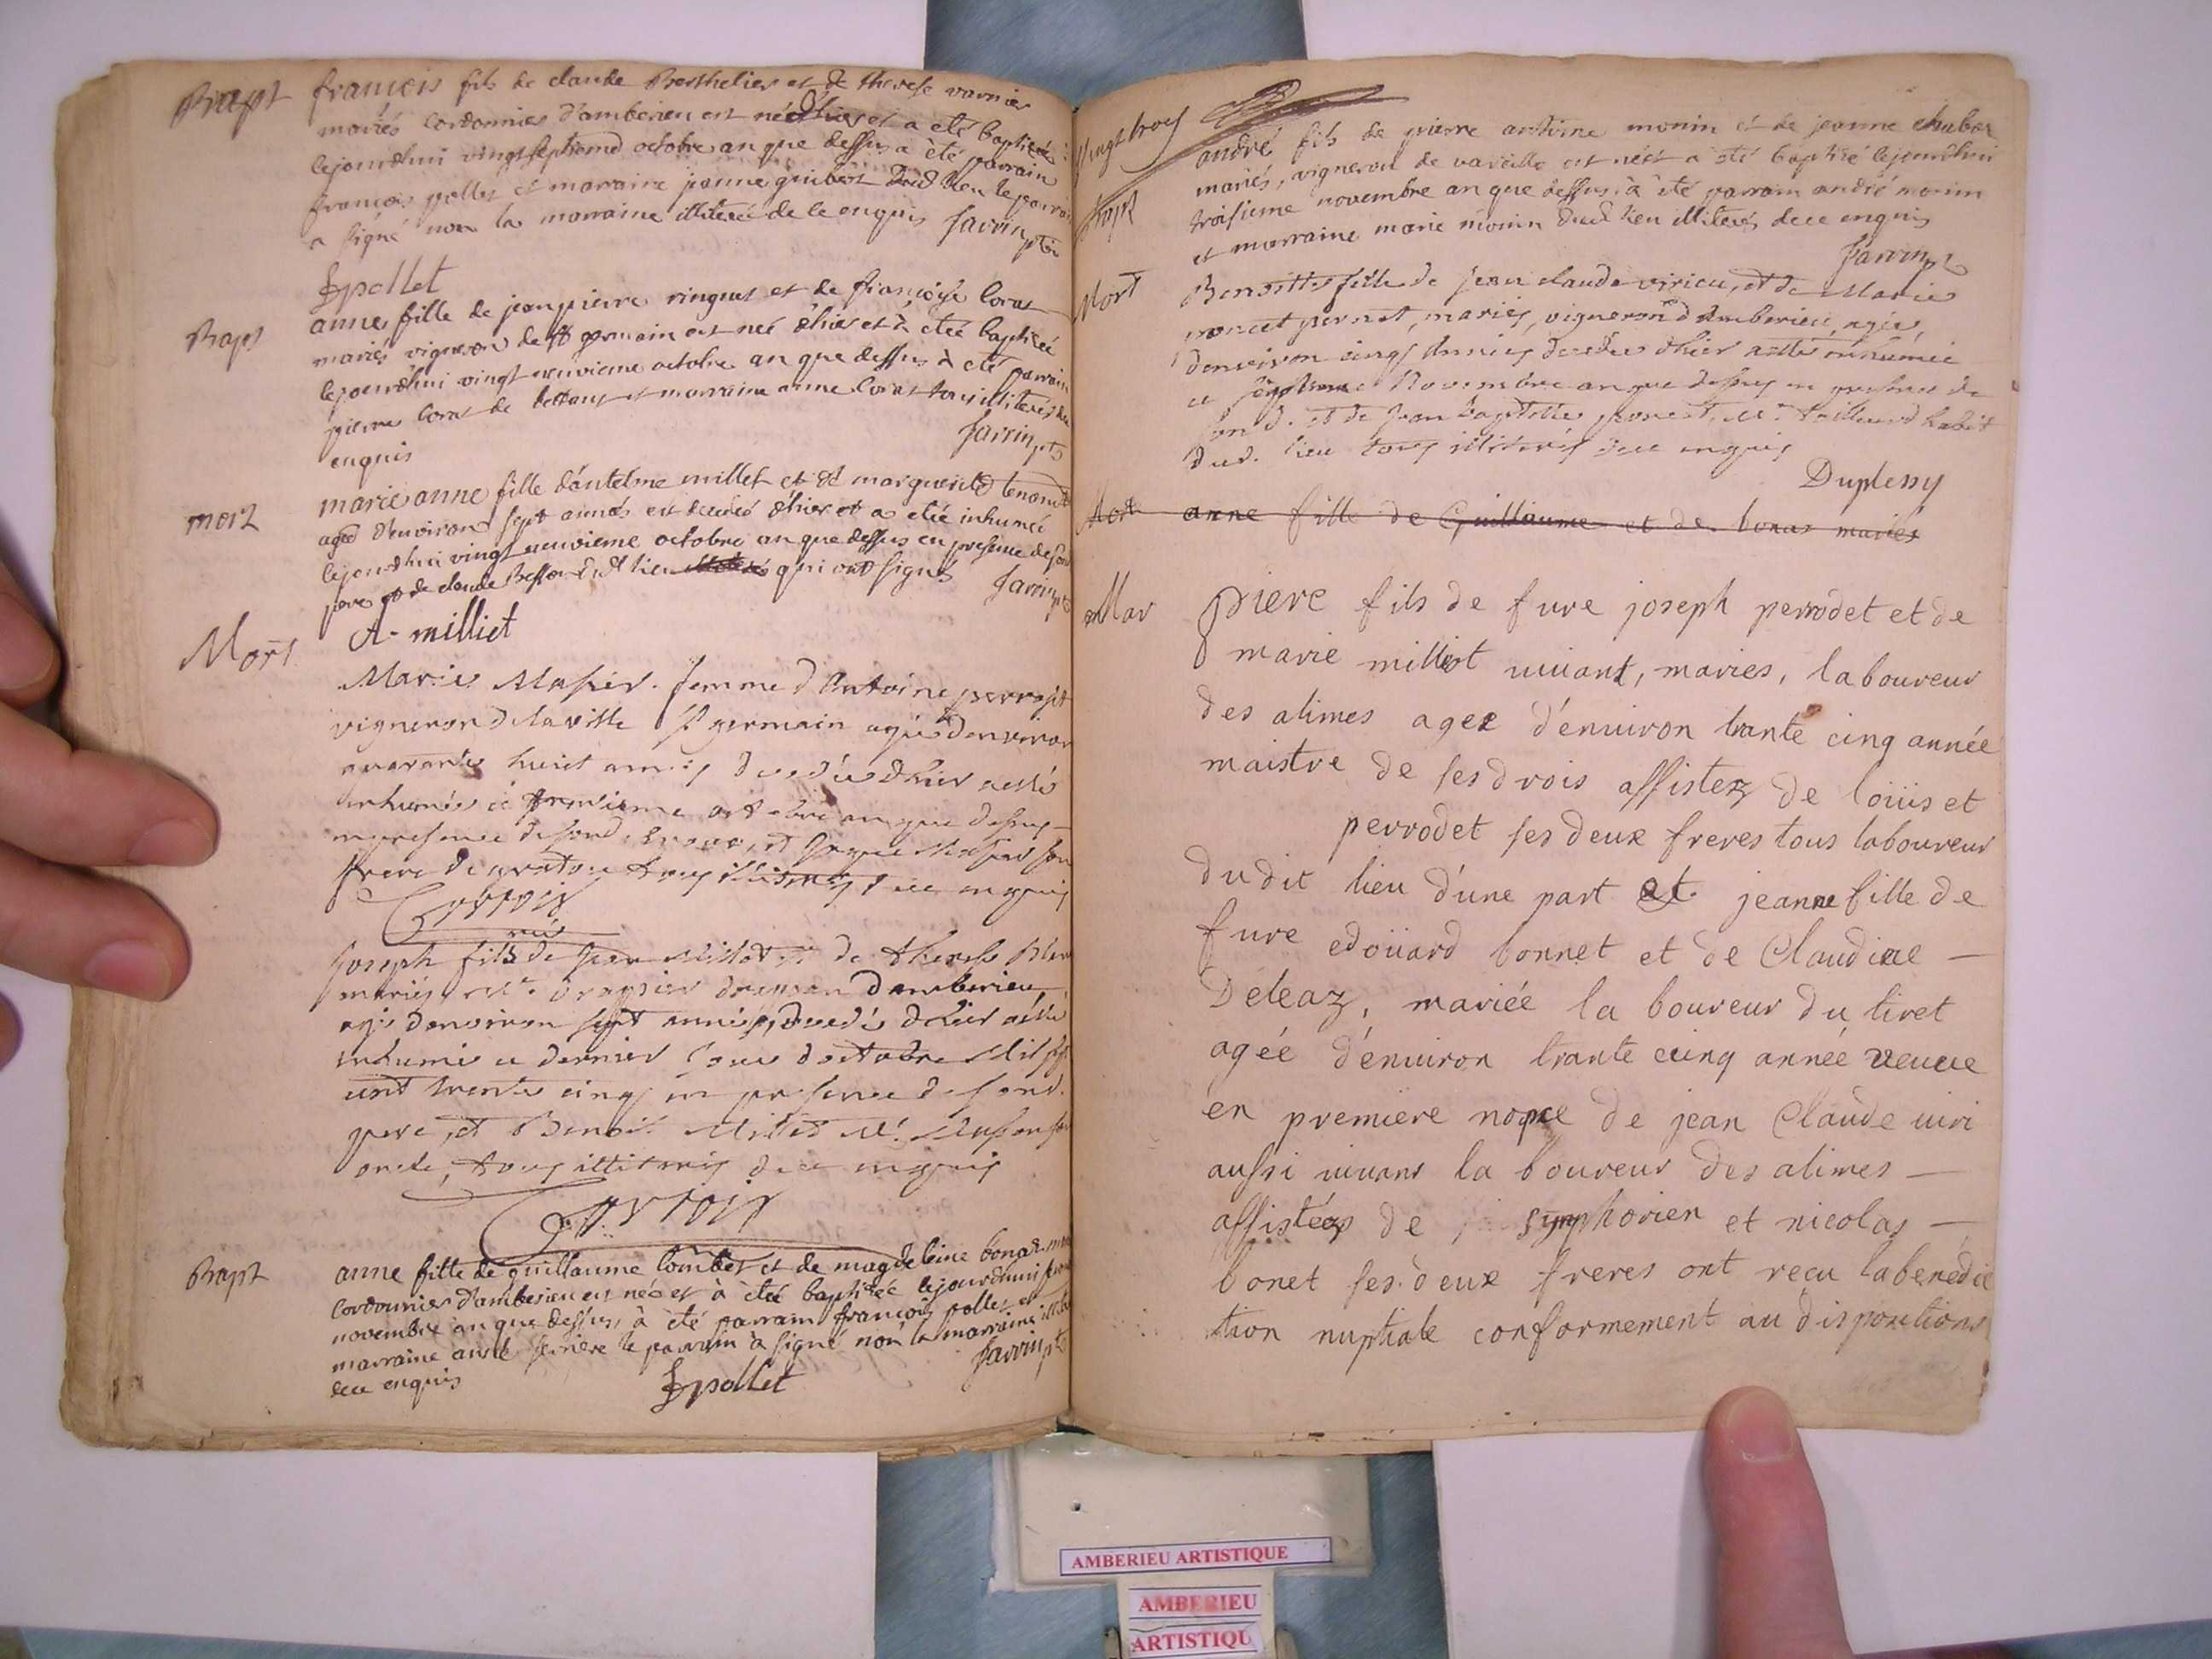 Bapt
françois fils de claude Berthelier et de therese varnier
mariés cordonnier d'amberieu est né d'hier et a été baptisé
lejourdhui vingt septieme octobre an que dessus a été parrain
françois pollet et marraine jeanne guibert dud lieu le parrain
a signé non la marraine illiterée de ce enquis Jarrin ptre
fpollet
Bapt
anne fille de jeanpierre ringuet et de françoise loras
mariés vigneron de st germain est née d'hier et à eté baptisée
lejourdhui vingt neuvieme octobre an que dessus à eté parrain
pierre loras de bettant et marraine anne loras tous illiterés de ce
enquis
Jarrin ptre
mort
marie anne fille d'antelme millet et de marguerite tenand
agée d'environ sept années est decedée d'hier et a eté inhumée
lejourdhui vingt neuvieme octobre an que dessus en presence de son
pere et de claude Besson dudt lieu qui ont signés Jarrin ptre
A. milliet
Mort
Marie femme d Antoine
vigneron de la ville St germain agée denviron
quarante huict années decedée dhier a esté
inhumée ce octobre an que dessus
en presence de sond. et son
frere tous illiterés de ce enquis
Joseph fils de Jean Millet et de therese
mariés Me drappier d'amberieu
agé denviron sept années decedé dhier a esté
inhumé ce dernier jour d'octobre Mil sept
cent trente cinq en presence de sond.
pere, et Benoit Millet Me son
oncle, tous illiterés de ce enquis
Bapt
anne fille de guillaume combet et de magdeleine bonas
cordonnier d'amberieu est née et à été baptisée lejourdhui
novembre an que dessus, à été parrain françois pollet et
marraine le parrain à signé non la marraine
de ce enquis
Jarrin ptre
fpollet
Vingt trois
Bapt
andré fils de pierre antoine monin et de jeanne chabot
mariés, vigneron de vareille est né et a été baptisé lejourdhui
troisieme novembre an que dessus à été parrain andré monin
et marraine marie monin dud lieu illiterés de ce enquis
Jarrin ptre
Mort
Benoitte fille de Jean claude virieu, et de Marie
mariés, vigneron d'Amberieu, agée
denviron cinq années decedée dhier a esté inhumée
ce septieme Novembre an que dessus en presence de
son d. et de Jean baptiste Me tailleur d'habit
dud. lieu tous illiterés de ce enquis
Duplessy
Mort anne fille de Guillaume et de bonas mariés
Mar
piere fils de fure joseph perrodet et de
marie milliot uiuant, maries, laboureur
des alimes agez d'enuiron trante cinq année
maistre de ses drois assistez de loüis et
perrodet ses deux freres tous laboureur
dudit lieu d'une part et jeanne fille de
fure edoüard bonnet et de Claudine —
Deleaz, mariée la boureur du tiret
agée d'enuiron trante cinq année veuue
en premiere nopce de jean Claude uiri
aussi uiuans la boureur des alimes —
assistéez de symphorien et nicolas —
bonet ses deux freres ont reçu la benedic
tion nuptiale conformement au dispositions
AMBERIEU ARTISTIQUE
AMBERIEU
ARTISTIQU